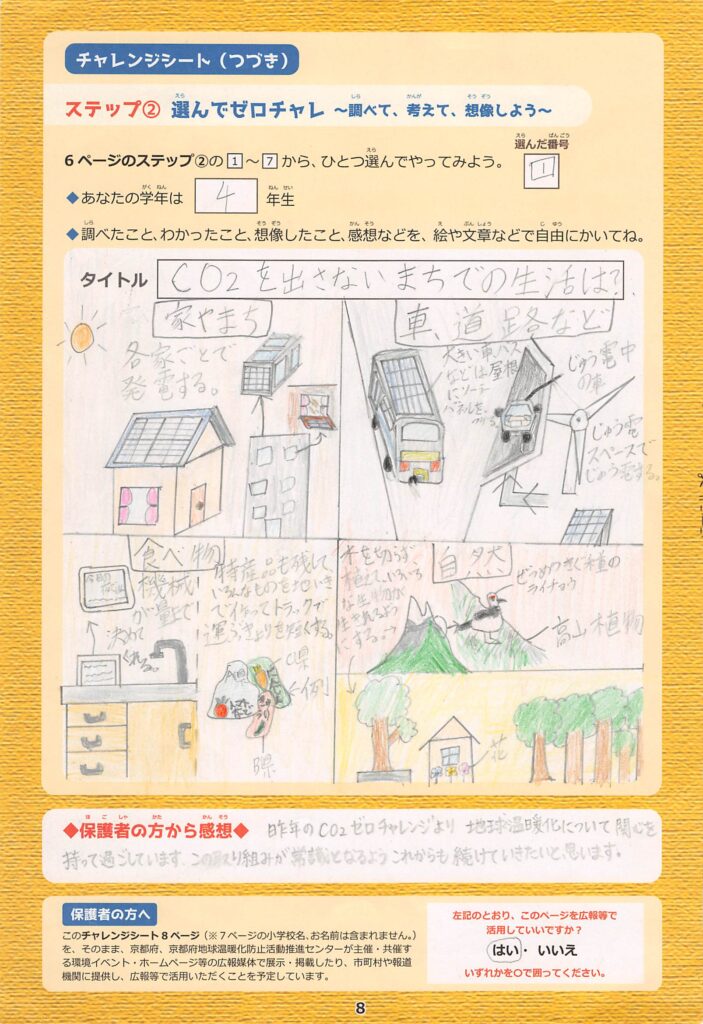 チャレンジシート(つづき)
ステップ② 選んでゼロチャレ ～調べて、考えて、想像しよう～
6ページのステップ②の 1 ～ 7 から、ひとつ選んでやってみよう。
選んだ番号
1
◆あなたの学年は 4 年生
◆調べたこと、わかったこと、想像したこと、感想などを、絵や文章などで自由にかいてね。
タイトル CO2を出さないまちでの生活は?
家やまち
各家ごとで
発電する。
車、道路など
大きい車、バス
などは屋根
にソーラー
パネルを、
つける
じゅう電中
の車
じゅう電
スペースで
じゅう電する。
食べ物
機械
が量まで
決めて
くれる。
特産品も残して
いろんなものを地いき
で作ってトラックで
運ぶきょりを短くする。
A県
C県
例
B県
自然
木を切らず、
植えて、いろいろ
な生物が
生きれるよう
にする。
ぜつめつきぐ種の
ライチョウ
高山植物
花
◆保護者の方から感想◆ 昨年のCO2ゼロチャレンジより 地球温暖化について関心を
持って過ごしています。この取り組みが常識となるようこれからも続けていきたいと思います。
保護者の方へ
このチャレンジシート8ページ(※7ページの小学校名、お名前は含まれません。)
を、そのまま、京都府、京都府地球温暖化防止活動推進センターが主催・共催す
る環境イベント・ホームページ等の広報媒体で展示・掲載したり、市町村や報道
機関に提供し、広報等で活用いただくことを予定しています。
左記のとおり、このページを広報等で
活用していいですか?
はい・いいえ
いずれかを○で囲ってください。
8